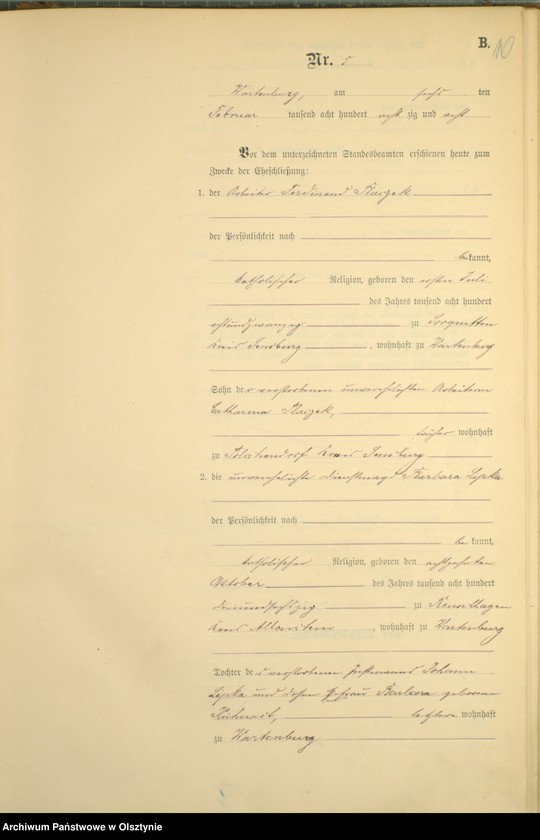 B.
10
Nr. 5
Wartenburg, am sechs ten
Februar tausend acht hundert acht zig und acht
Vor dem unterzeichneten Standesbeamten erschienen heute zum
Zwecke der Eheschließung:
1. der Arbeiter Ferdinand
der Persönlichkeit nach
be kannt,
katholischer Religion, geboren den ersten Juli
des Jahres tausend acht hundert
zu Sorquitten
Kreis Sensburg, wohnhaft zu Wartenburg
Sohn der verstorbenen unverehelichten Arbeiterin
Catharina
früher wohnhaft
zu Kreis Sensburg
2. die unverehelichte Dienstmagd Barbara Lipka
der Persönlichkeit nach
be kannt,
katholischer Religion, geboren den achtzehnten
October des Jahres tausend acht hundert
zu
Kreis Allenstein, wohnhaft zu Wartenburg
Tochter de s verstorbenen Johann
Lipka und dessen Ehefrau Barbara geborene
letztere wohnhaft
zu Wartenburg
Archiwum Państwowe w Olsztynie